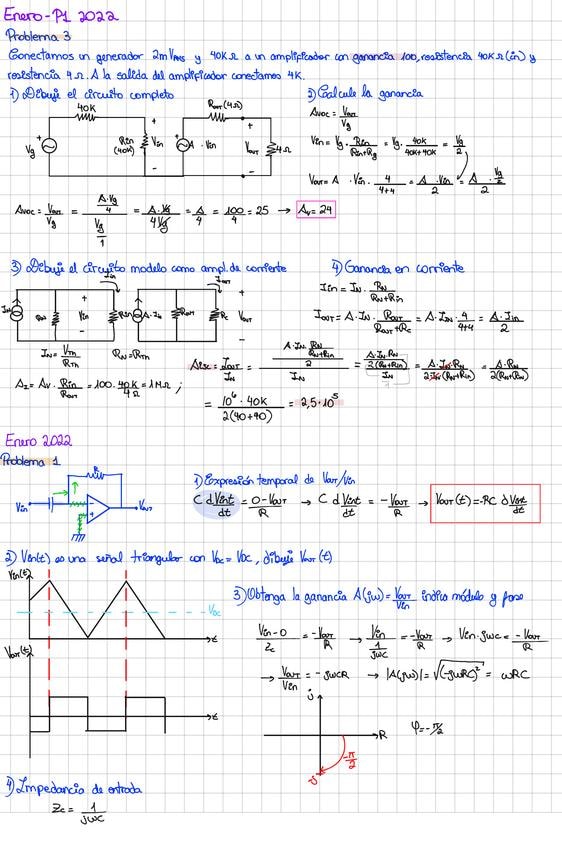 Enero-P1 2022
Problema 3
Conectamos un generador 2mVRMS y 40KΩ a un amplificador con ganancia 100, resistencia 40KΩ(in) y
resistencia 4Ω. A la salida del amplificador conectamos 4K.
1) Dibuje el circuito completo
40K
Vg
Rin (40K)
Vin
A·Vin
ROUT(4Ω)
VOUT
4Ω
Avoc = VOUT/Vg = (A·Vg/4)/(Vg/1) = A·Vg/4Vg = A/4 = 100/4 = 25 → Av = 24
2) Calcule la ganancia
Avoc = VOUT/Vg
Vin = Vg · Rin/(Rin+Rg) = Vg · 40K/(40K+40K) = Vg/2
VOUT = A · Vin · 4/(4+4) = A·Vin/2 = A·Vg/2 /2
3) Dibuje el circuito modelo como ampl. de corriente
Iin
IOUT
IN
RN
Vin
Rin
A·IN
ROUT
RC
VOUT
IN = VTH/RTH RN = RTH
AI = Av · Rin/ROUT = 100 · 40K/4Ω = 1MΩ ;
4) Ganancia en corriente
Iin = IN · RN/(RN+Rin)
IOUT = A·IN · ROUT/(ROUT+RC) = A·IIN · 4/(4+4) = A·Iin/2
AIsc = IOUT/IN = (A·IN·RN/(RN+Rin)/2)/IN = (A·IN·RN/2(RN+Rin))/IN = A·IN·RN/2·IN(RN+Rin) = A·RN/2(RN+Rin)
= 10⁶·40K/2(40+40) = 2,5·10⁵
Enero 2022
Problema 1
R
Vin
VOUT
1) Expresión temporal de VOUT/Vin
C dVint/dt = (0-VOUT)/R → C dVint/dt = -VOUT/R → VOUT(t) = -RC dVint/dt
2) Vin(t) es una señal triangular con VDC = VDC, dibuje VOUT(t)
Vin(t)
VDC
t
VOUT(t)
t
3) Obtenga la ganancia A(jω) = VOUT/Vin indica módulo y fase
(Vin-0)/Zc = -VOUT/R → Vin/(1/jωc) = -VOUT/R → Vin·jωc = -VOUT/R
→ VOUT/Vin = -jωCR → |A(jω)| = √(-jωRC)² = ωRC
j
R
-π/2
-j
φ = -π/2
4) Impedancia de entrada
Zc = 1/jωc